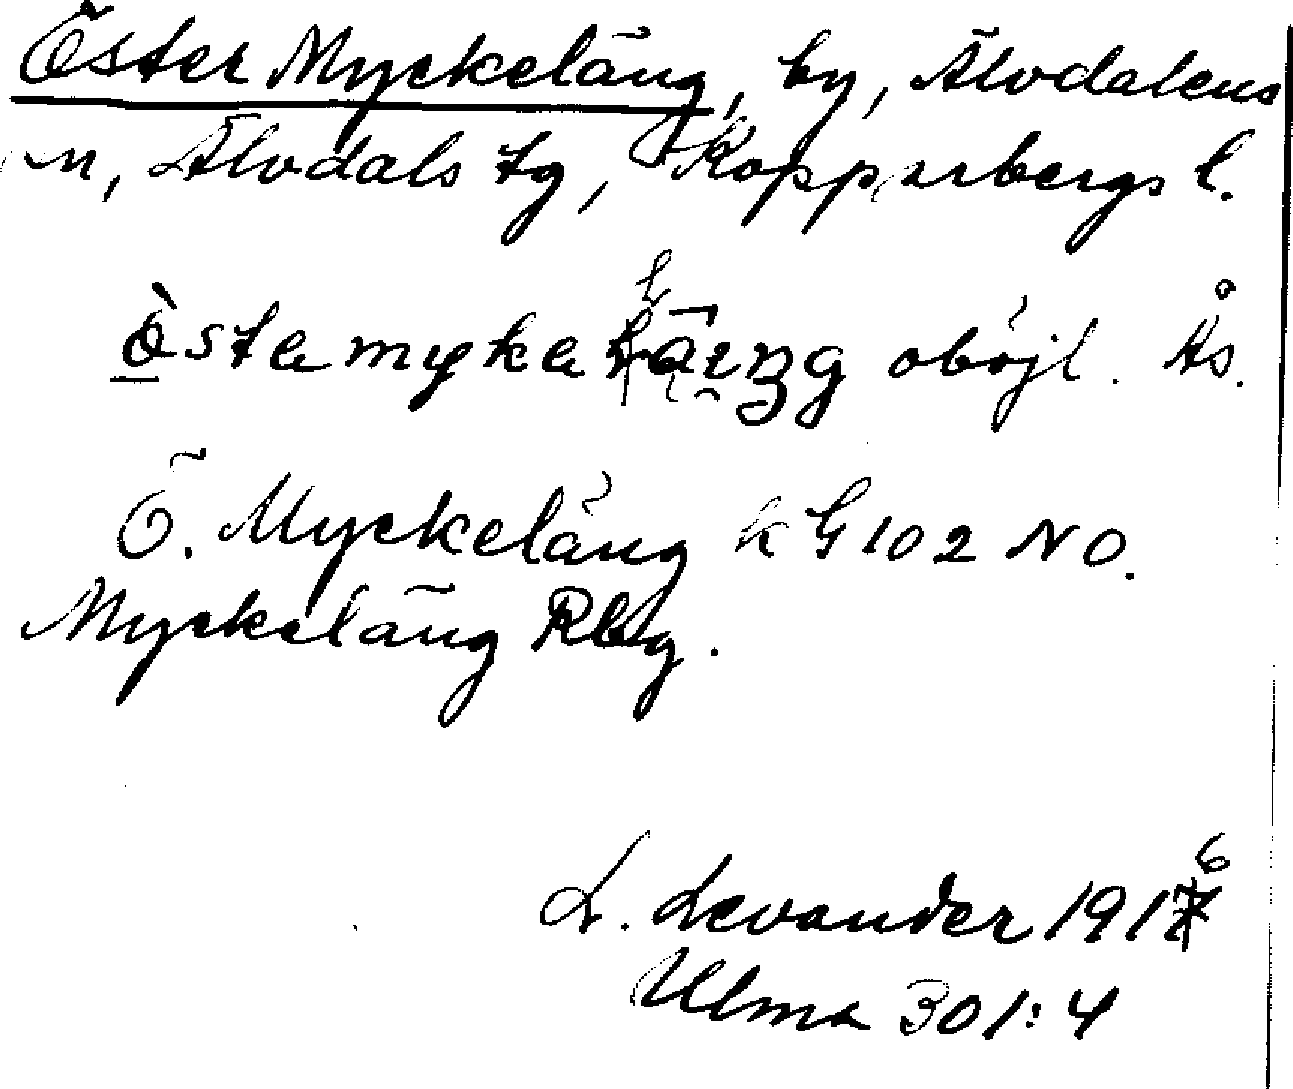 Öster Myckeläng, by, Älvdalens
sn, Älvdals tg, Kopparbergs l.
oböjl. Ås.
Ö. Myckeläng k G 102 NO.
Myckeläng Rbg.
L. Levander 1916
Ulma 301:4